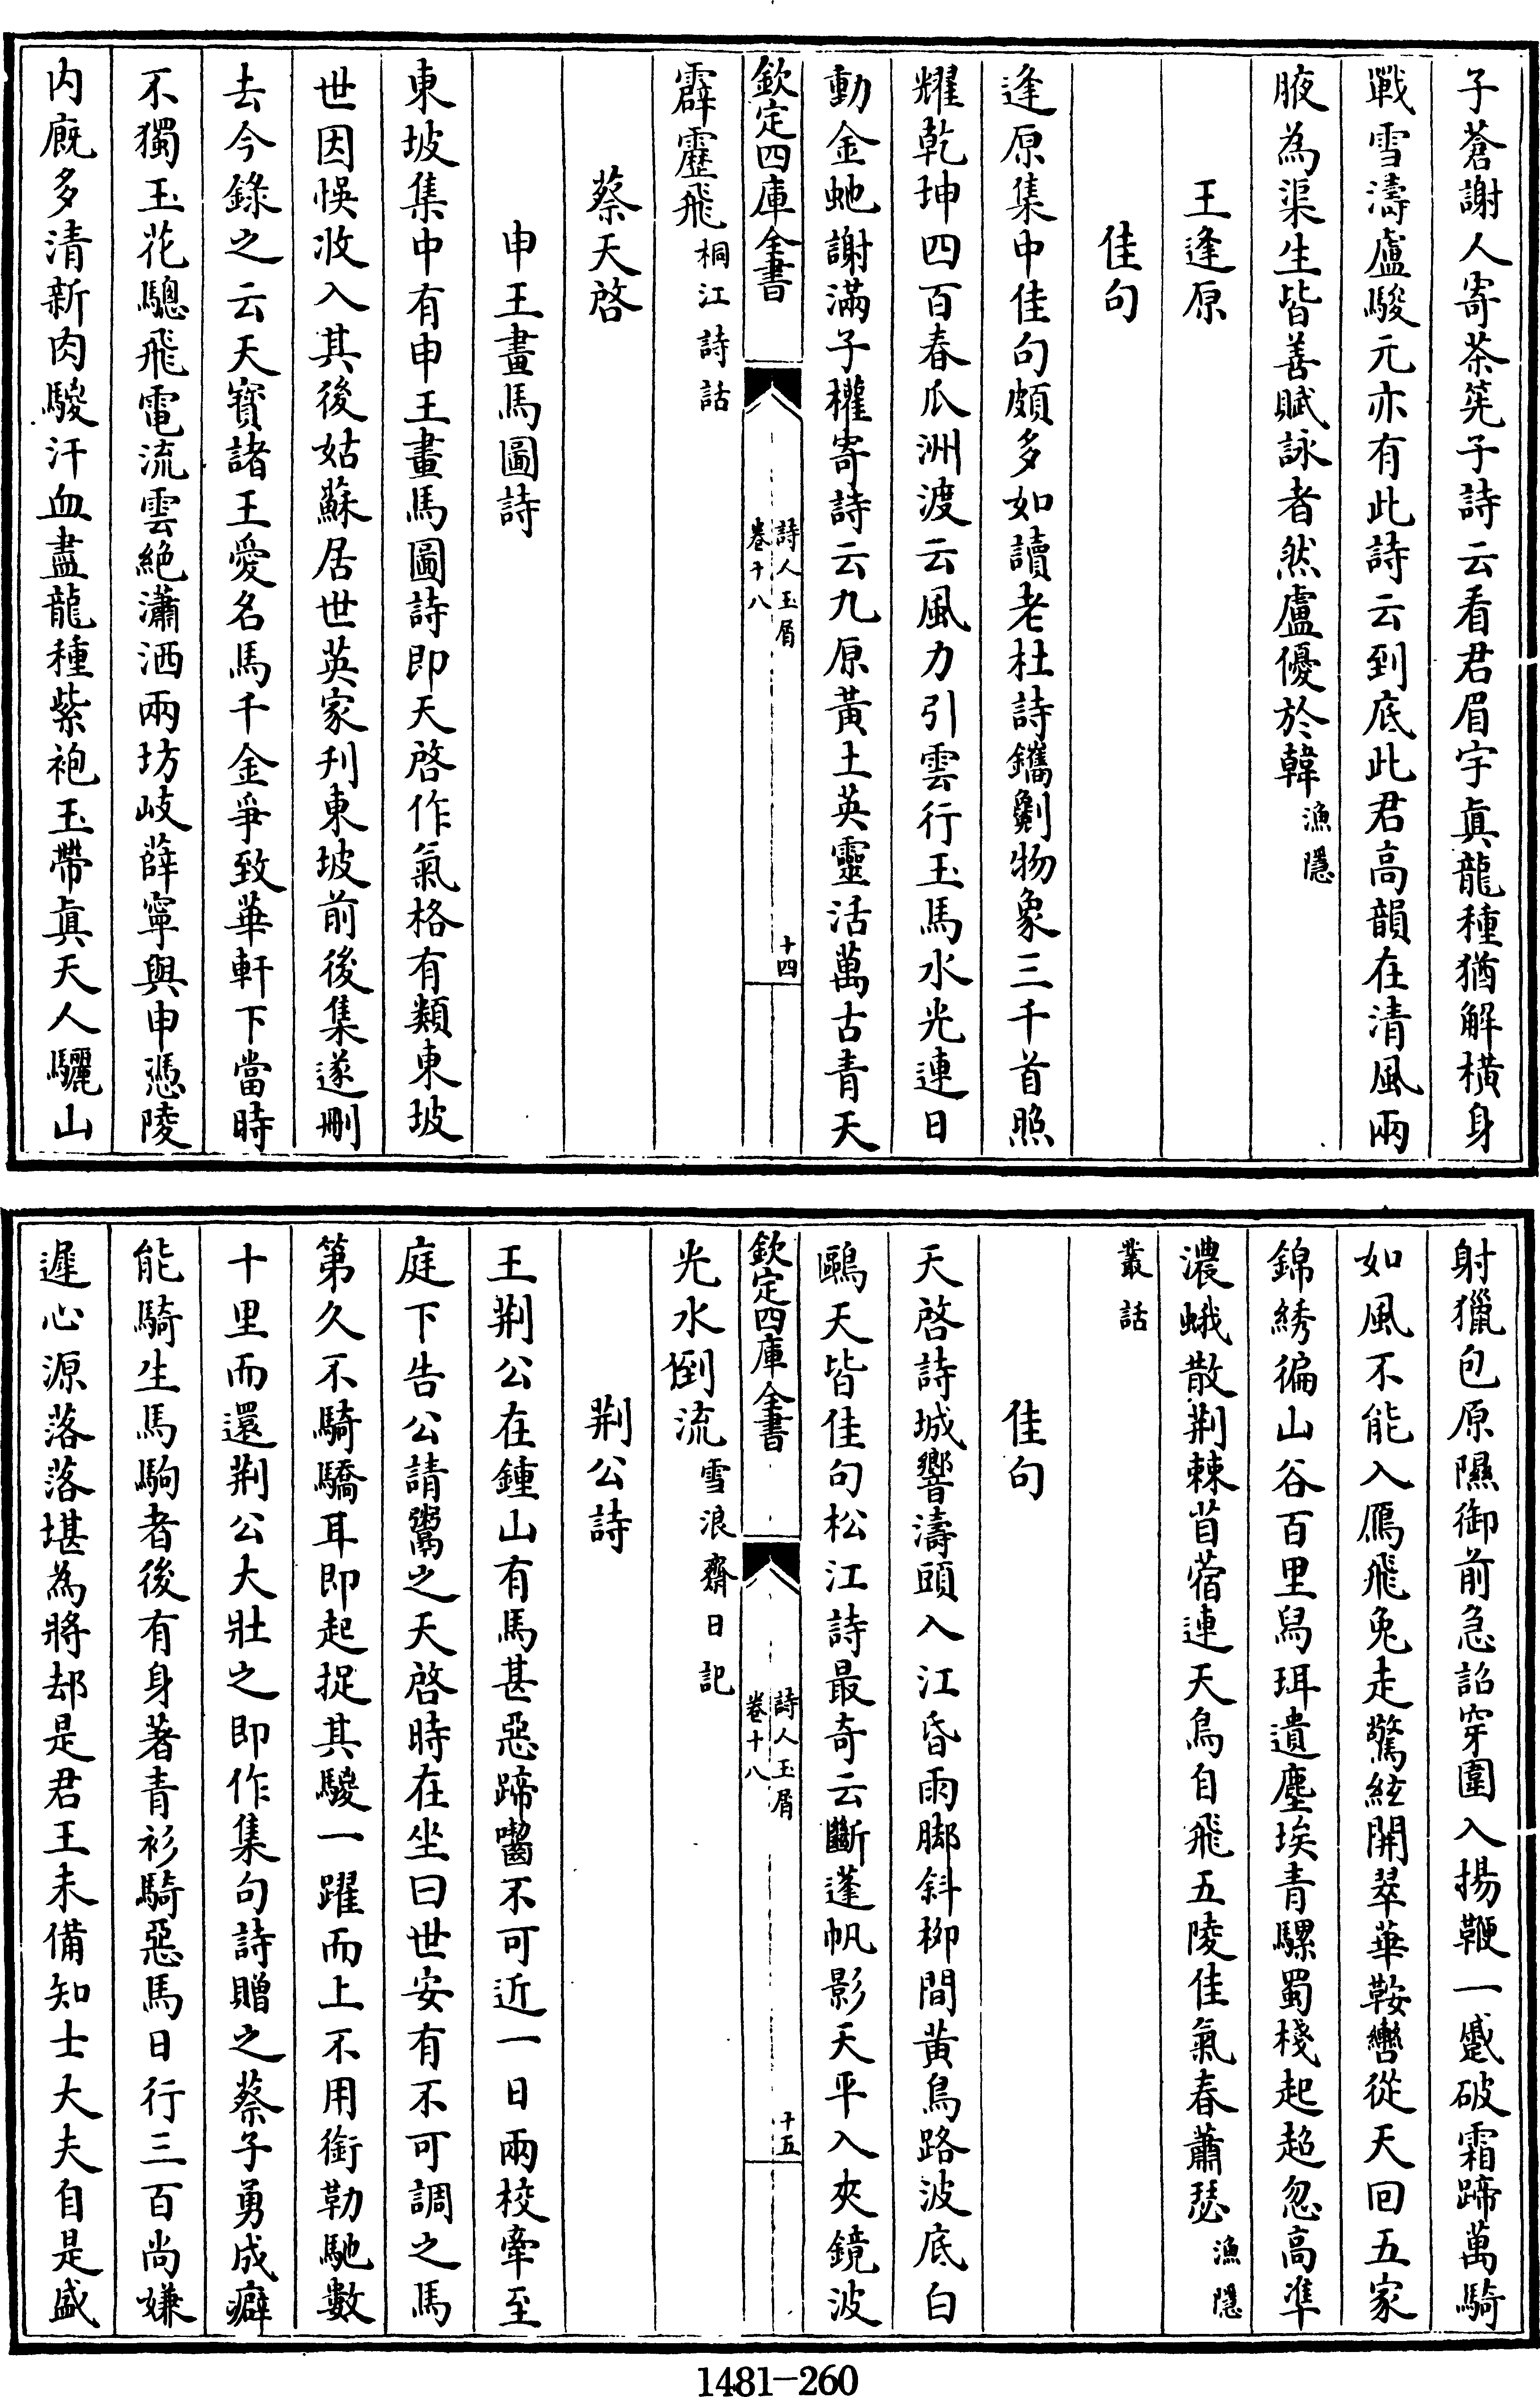 子蒼謝人寄茶筅子詩云看君眉宇真龍種猶解橫身
戰雪濤盧駿元亦有此詩云到底此君高韻在清風兩
腋為渠生皆善賦詠者然盧優於韓漁隱
王逢原
佳句
逢原集中佳句頗多如讀老杜詩鐫劖物象三千首照
耀乾坤四百春瓜洲渡云風力引雲行玉馬水光連日
動金虵謝滿子權寄詩云九原黃土英靈活萬古青天
欽定四庫全書
詩人玉屑
卷十八
十四
霹靂飛桐江詩話
蔡天啓
申王畫馬圖詩
東坡集中有申王畫馬圖詩即天啓作氣格有類東坡
世因悞收入其後姑蘇居世英家刋東坡前後集遂刪
去今錄之云天寳諸王愛名馬千金爭致華軒下當時
不獨玉花驄飛電流雲絕瀟洒兩坊岐薛寧與申憑陵
内廐多清新肉騣汗血盡龍種紫袍玉帶真天人驪山
射獵包原隰御前急詔穿圍入揚鞭一蹙破霜蹄萬騎
如風不能入鴈飛兔走驚絃開翠華鞍轡從天回五家
錦綉徧山谷百里舄珥遺塵埃青騾蜀棧起超忽高準
濃蛾散荆棘苜蓿連天鳥自飛五陵佳氣春蕭瑟漁隱
叢話
佳句
天啓詩城響濤頭入江昏雨脚斜柳間黃鳥路波底白
鷗天皆佳句松江詩最奇云斷蓬帆影天平入夾鏡波
欽定四庫全書
詩人玉屑
卷十八
十五
光水倒流雪浪齋日記
荆公詩
王荆公在鍾山有馬甚惡蹄嚙不可近一日兩校牽至
庭下告公請鬻之天啓時在坐曰世安有不可調之馬
第久不騎驕耳即起捉其騣一躍而上不用銜勒馳數
十里而還荆公大壯之即作集句詩贈之蔡子勇成癖
能騎生馬駒者後有身著青衫騎惡馬日行三百尚嫌
遲心源落落堪為將却是君王未備知士大夫自是盛
1481—260